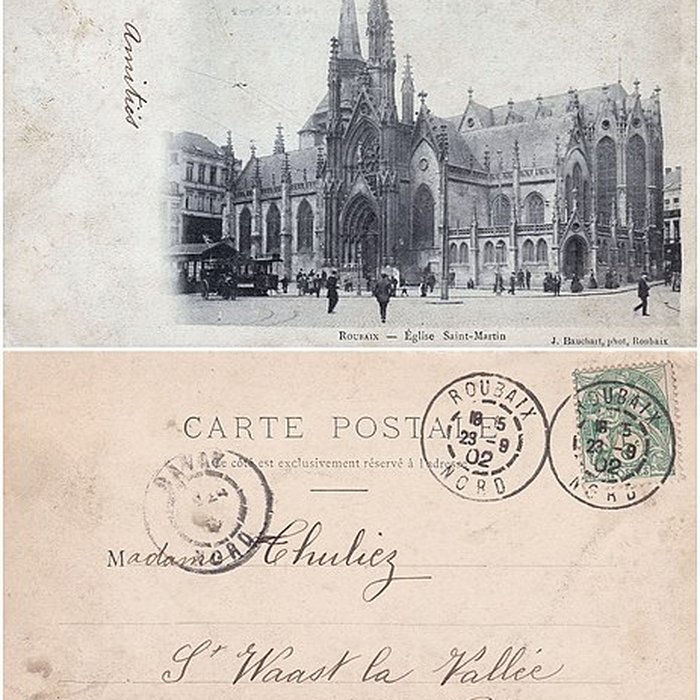 Amitiés
ROUBAIX — Église Saint-Martin
J. Bauchart, phot, Roubaix
CARTE POSTALE
Ce côté est exclusivement réservé à l'adresse
ROUBAIX
18 5
23 - 9
02
NORD
ROUBAIX
18 5
23 - 9
02
NORD
BAVAY
NORD
Madame Thuliez
St Waast la Vallée